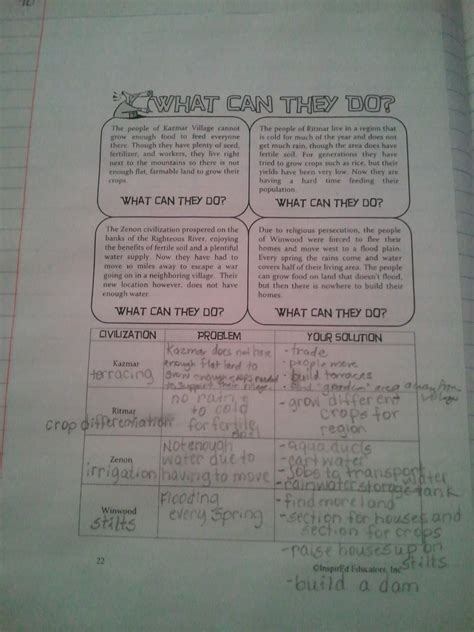 WHAT CAN THEY DO?
The people of Kazmar Village cannot
grow enough food to feed everyone
there. Though they have plenty of seed,
fertilizer, and workers, they live right
next to the mountains so there is not
enough flat, farmable land to grow their
crops.
WHAT CAN THEY DO?
The people of Ritmar live in a region that
is cold for much of the year and does not
get much rain, though the area does have
fertile soil. For generations they have
tried to grow crops such as rice, but their
yields have been very low. Now they are
having a hard time feeding their
population.
WHAT CAN THEY DO?
The Zenon civilization prospered on the
banks of the Righteous River, enjoying
the benefits of fertile soil and a plentiful
water supply. Now they have had to
move so miles away to escape a war
going on in a neighboring village. Their
new location however, does not have
enough water.
WHAT CAN THEY DO?
Due to religious persecution, the people
of Winwood were forced to flee their
homes and move west to a flood plain.
Every spring the rains come and water
covers half of their living area. The people
can grow food on land that doesn't flood,
but then there is nowhere to build their
homes.
WHAT CAN THEY DO?
CIVILIZATION PROBLEM YOUR SOLUTION
Kazmar
terracing
Kazmar does not have
enough flat land to
grow enough crops needed
to support their village
- trade
- people move
- build terraces
- find "good" area away from
village
Ritmar
crop differentiation
no rain
to cold
for fertile
soil
- grow different
crops for
region
Zenon
irrigation
Not enough
water due to
having to move
- aqua ducts
- cart water
- Jobs to transport water
- rainwater storage tank
Winwood
stilts
Flooding
every Spring
- find more land
- section for houses and
section for crops
- raise houses up on
stilts
- build a dam
22
©InspirEd Educators, Inc